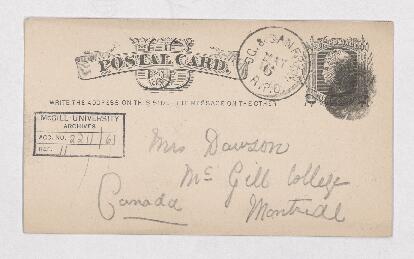 POSTAL CARD.
OG. & SAN FRAN.
MAY
6
R.P.O.
WRITE THE ADDRESS ON THIS SIDE THE MESSAGE ON THE OTHER
McGILL UNIVERSITY
ARCHIVES
ACC. NO. 2211/61
REF. 11
Mrs Dawson
Mc Gill College
Montreal
Canada